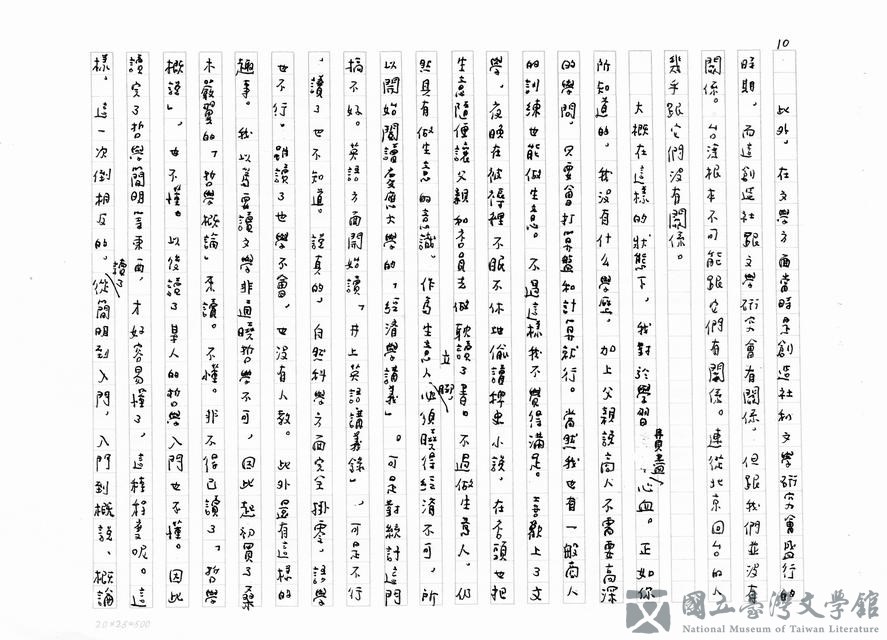 10
此外，在文學方面當時是創造社和文學研究會盛行的
時期，而這創造社跟文學研究會有關係。但跟我們並沒有
關係。台灣根本不可能跟它們有關係。連從北京回台的人
幾乎跟它們沒有關係。
大概在這樣的狀態下，我對於學習貫盡心血。正如你
所知道的，我沒有什么學歷，加上父親說商人不需要高深
的學問，只要會打算盤和計算就行。當然我也有一般商人
的訓練也能做生意。不過這樣我不覺得滿足。喜歡上了文
學，夜晚在被褥裡不眠不休地偷讀稗史小說，在店頭也把
生意隨便讓父親和店員去做耽讀了書。不過做生意人，仍
然具有做生意的意識。作為生意人立腳，必須曉得經濟不可，所
以開始閱讀慶應大學的「經濟學講義」。可是對統計這門
搞不好。英語方面開始讀「井上英語講義錄」，可是不行
，讀了也不知道。說真的，自然科學方面完全掛零，語學
也不行。雖讀了也學不會，也沒有人教。此外還有這樣的
趣事。我以為要讀文學非通曉哲學不可，因此起初買了桑
木嚴翼的「哲學概論」來讀。不懂。非不得已讀了「哲學
概說」，也不懂。以後讀了某人的哲學入門也不懂。因此
讀完了哲學簡明等東西，才好容易懂了，這種程度呢。這
樣，這一次倒相反的，讀了從簡明到入門，入門到概說、概論
20×25=500
國立臺灣文學館
National Museum of Taiwan Literature